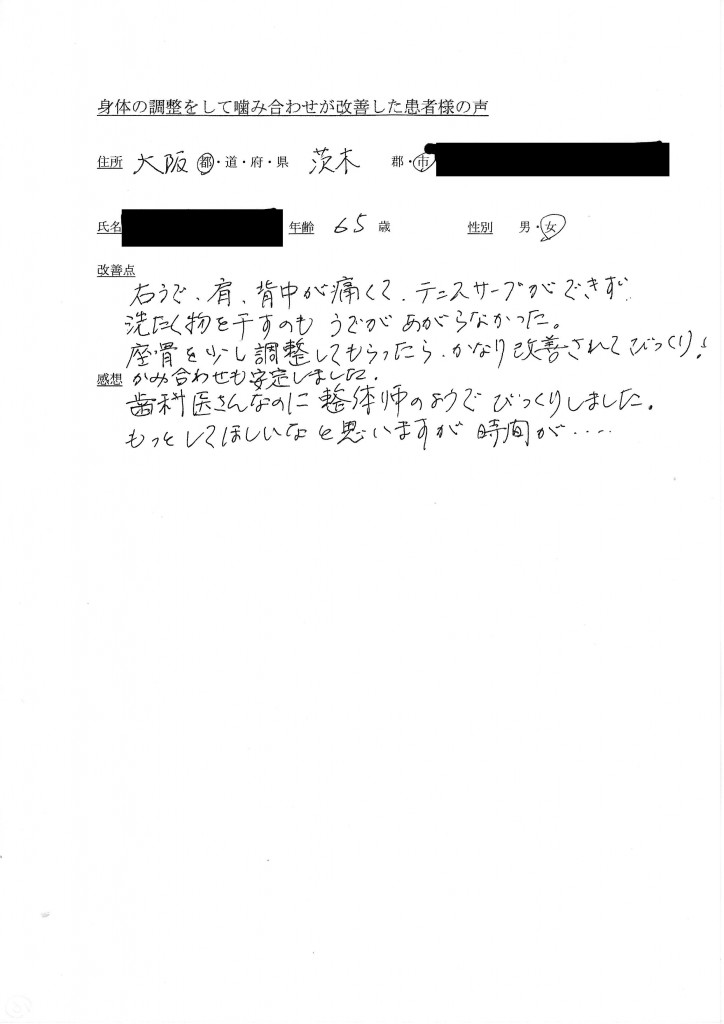 身体の調整をして噛み合わせが改善した患者様の声
住所 大阪 都・道・府・県 茨木 郡・市
氏名 年齢 65 歳 性別 男・女
改善点
右うで、肩、背中が痛くて、テニスサーブができず
洗たく物を干すのも うでがあがらなかった。
座骨を少し調整してもらったら、かなり改善されてびっくり!
かみ合わせも安定しました。
感想
歯科医さんなのに整体師のようでびっくりしました。
もっとしてほしいなと思いますが 時間が....